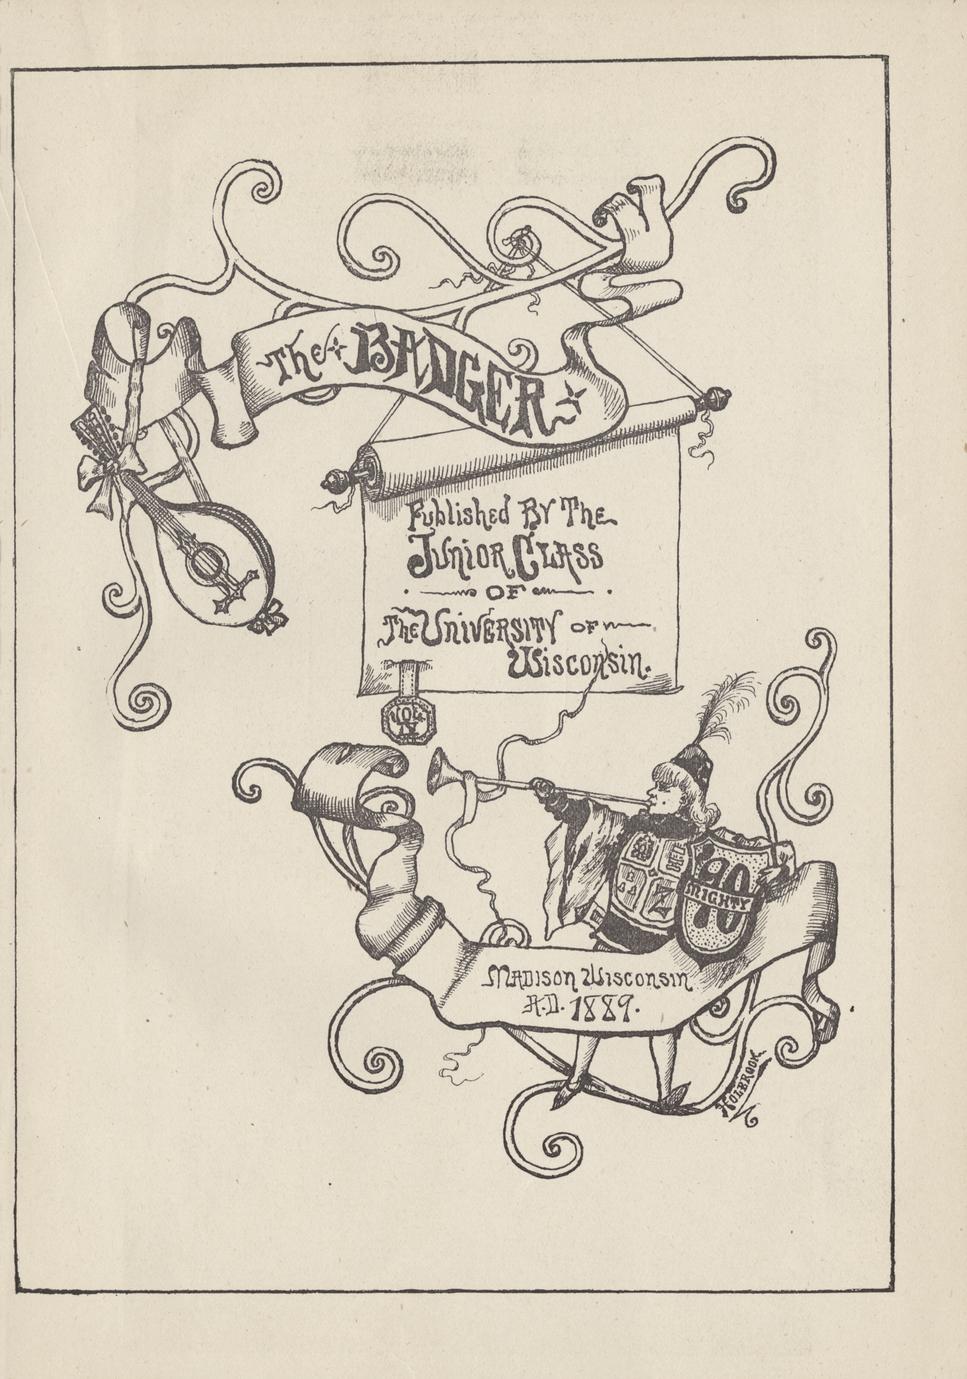 The BADGER
Published By The
Junior Class
OF
The University OF
Wisconsin.
VOL.
IV
'90
MIGHTY
Madison Wisconsin
A.D. 1889.
HOLBROOK